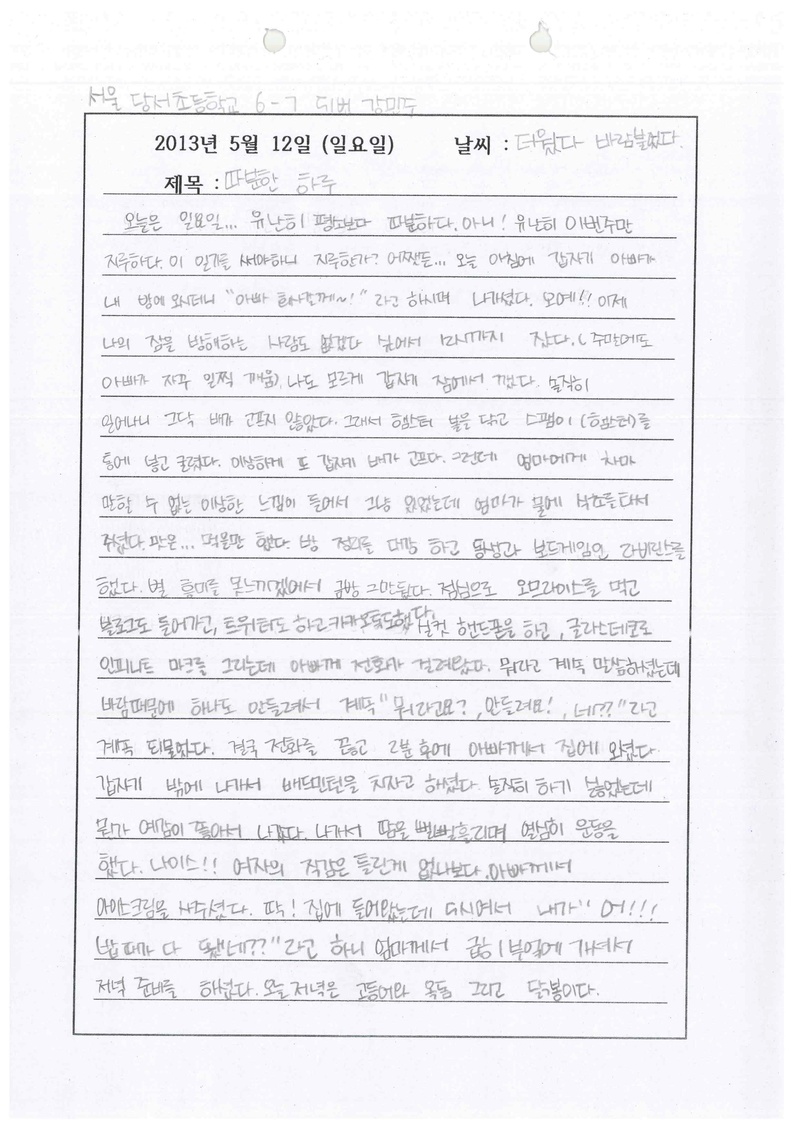 서울 당서초등학교 6-7 강민주
2013년 5월 12일 (일요일) 날씨 : 더웠다 바람불었다.
제목 : 따분한 하루
오늘은 일요일... 유난히 평소보다 따분하다. 아니! 유난히 이번주만
지루하다. 이 일기를 써야하니 지루한가? 어쨋든... 오늘 아침에 갑자기 아빠가
내 방에 오시더니 "아빠 회사갈께~!" 라고 하시며 나가셨다. 오예!! 이제
나의 잠을 방해하는 사람도 없겠다 싶어서 12시까지 잤다. (주말에도
아빠가 자꾸 일찍 깨움) 나도 모르게 갑자기 잠에서 깼다. 솔직히
일어나니 그닥 배가 고프지 않았다. 그래서 햄스터 볼을 닦고 스팸이 (햄스터)를
통에 넣고 굴렸다. 이상하게 또 갑자기 배가 고프다. 그런데 엄마에게 차마
말할 수 없는 이상한 느낌이 들어서 그냥 있었는데 엄마가 물에 식초를 타서
주셨다. 맛은... 먹을만 했다. 방 정리를 대강 하고 동생과 보드게임인 라비린스를
했다. 별 흥미를 못느끼겠어서 금방 그만뒀다. 점심으로 오므라이스를 먹고
블로그도 들어가고, 트위터도 하고 카카오톡도했다. 실컷 핸드폰을 하고, 글라스데코로
인피니트 마크를 그리는데 아빠께 전화가 걸려왔다. 뭐라고 계속 말씀하셨는데
바람때문에 하나도 안들려서 계속 "뭐라고요?, 안들려요!, 네??" 라고
계속 되물었다. 결국 전화를 끊고 2분 후에 아빠께서 집에 오셨다.
갑자기 밖에 나가서 배드민턴을 치자고 하셨다. 솔직히 하기 싫었는데
뭔가 예감이 좋아서 나갔다. 나가서 땀을 뻘뻘흘리며 열심히 운동을
했다. 나이스!! 여자의 직감은 틀린게 없나보다. 아빠께서
아이스크림을 사주셨다. 딱! 집에 들어왔는데 6시여서 내가 "어!!!
밥 때가 다 됐네??" 라고 하니 엄마께서 급히 부엌에 가셔서
저녁 준비를 하셨다. 오늘 저녁은 고등어와 옥돔 그리고 닭봉이다.